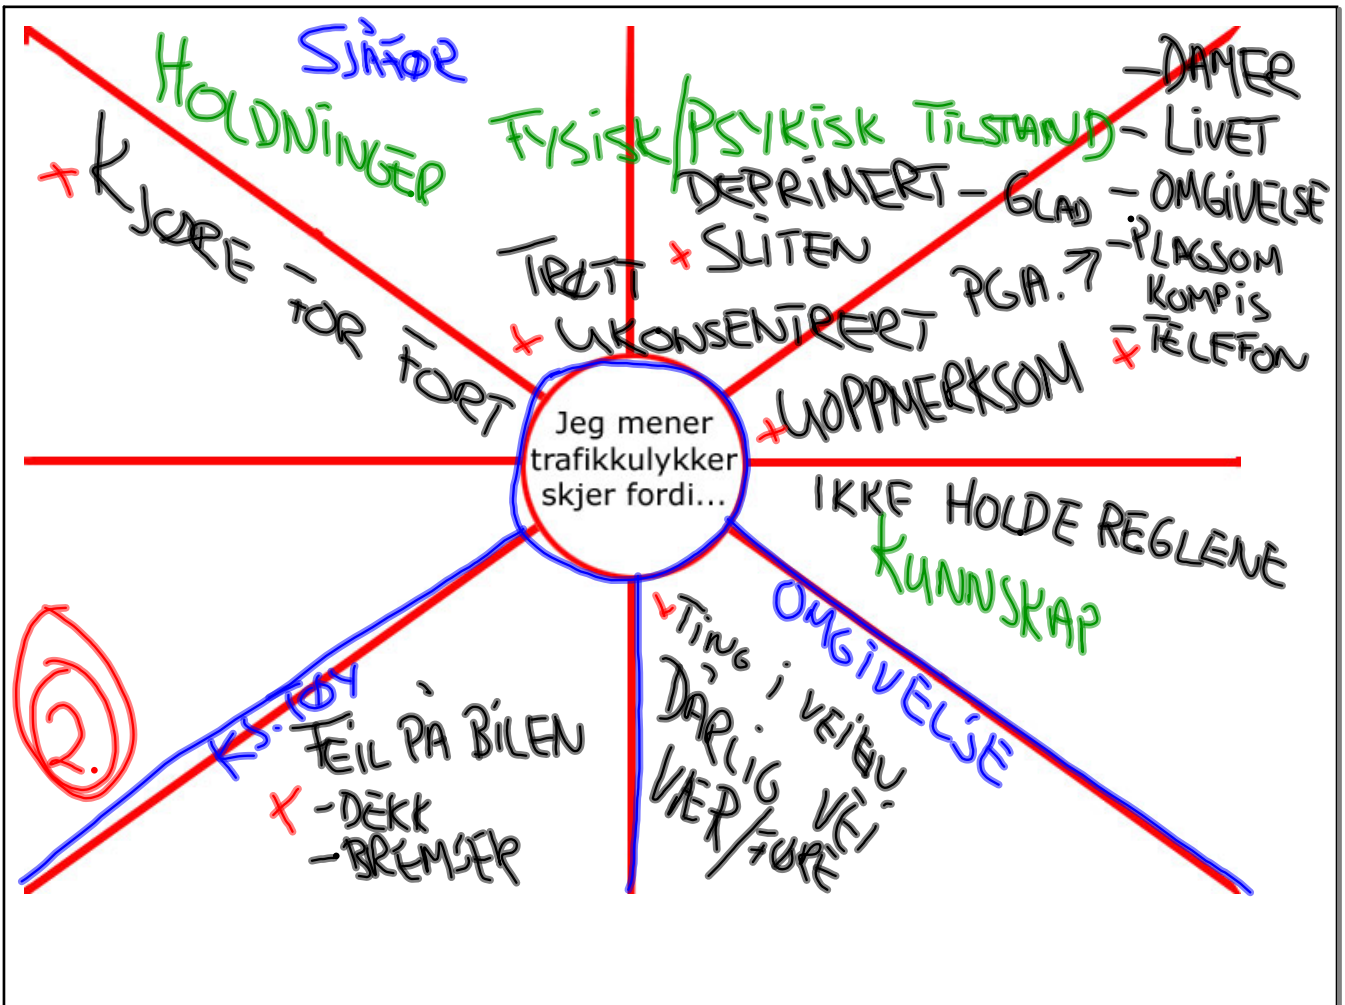 SJÅFØR
HOLDNINGER
KJØRE - FOR FORT
FYSISK/PSYKISK TILSTAND
DEPRIMERT - GLAD
SLITEN
TRØTT
UKONSENTRERT PGA. ↗
- DAMER
- LIVET
- OMGIVELSE
- PLAGSOM
KOMPIS
- TELEFON
UOPPMERKSOM
Jeg mener
trafikkulykker
skjer fordi...
IKKE HOLDE REGLENE
KUNNSKAP
OMGIVELSE
TING i VEIEN
DÅRLIG VEI
VÆR/FØRE
FEIL PÅ BILEN
- DEKK
- BREMSER
2.